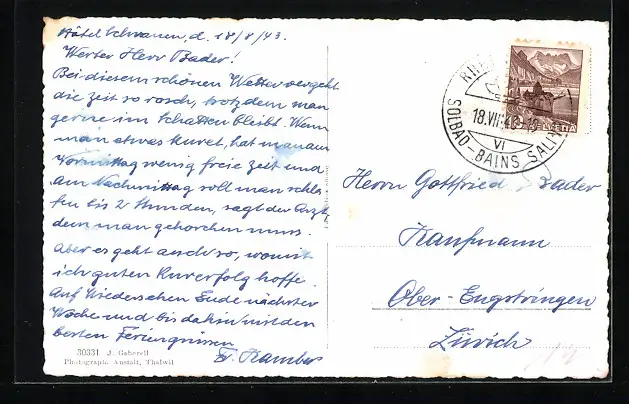 Hôtel Schwanen, d. 18/8/43.
Werter Herr Bader!
Bei diesem schönen Wetter vergeht
die Zeit so rasch, trotzdem man
gerne im Schatten bleibt. Wenn
man etwas kuret, hat man am
Vormittag wenig freie Zeit und
am Nachmittag soll man schla-
fen bis 2 Stunden, sagt der Arzt,
dem man gehorchen muss.
Aber es geht auch so, womit
ich guten Kurerfolg hoffe.
Auf Wiedersehen Ende nächster
Woche und bis dahin mit den
besten Feriengrüssen
30331 J. Gaberell
Photograph. Anstalt, Thalwil
HELVETIA
18.VII 43
VI
SOLBAD-BAINS SALINS
Herrn Gottfried Bader
Kaufmann
Ober-Engstringen
Zürich